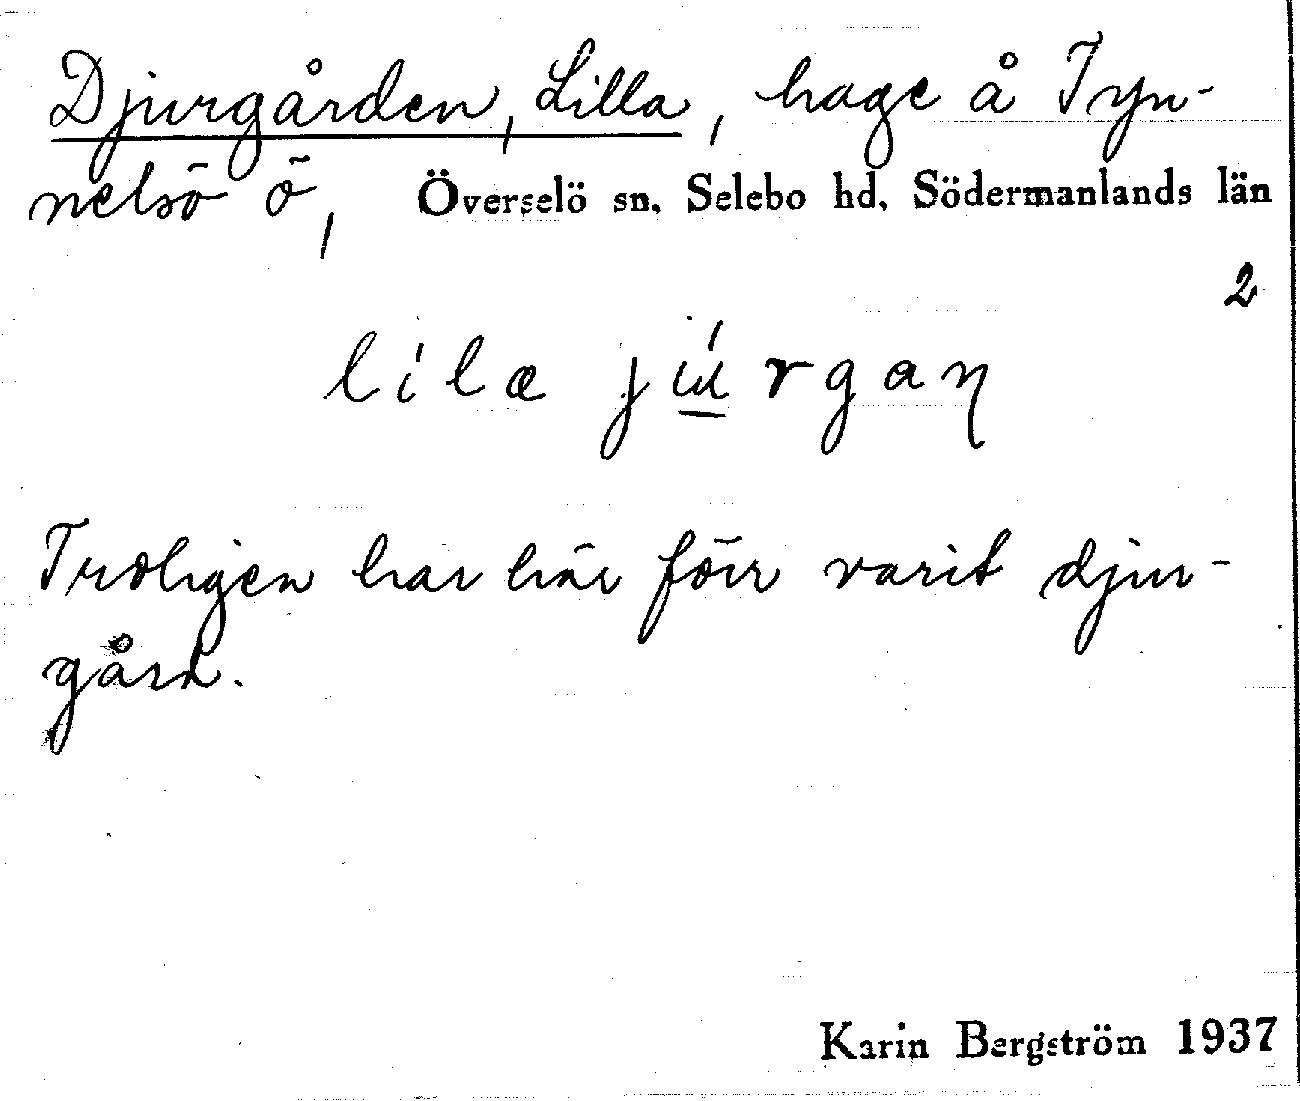 Djurgården, Lilla, hage å Tyn-
nelsö ö, Överselö sn. Selebo hd. Södermanlands län
2
lila ju̲rgaŋ
Troligen har här förr varit djur-
gård.
Karin Bergström 1937